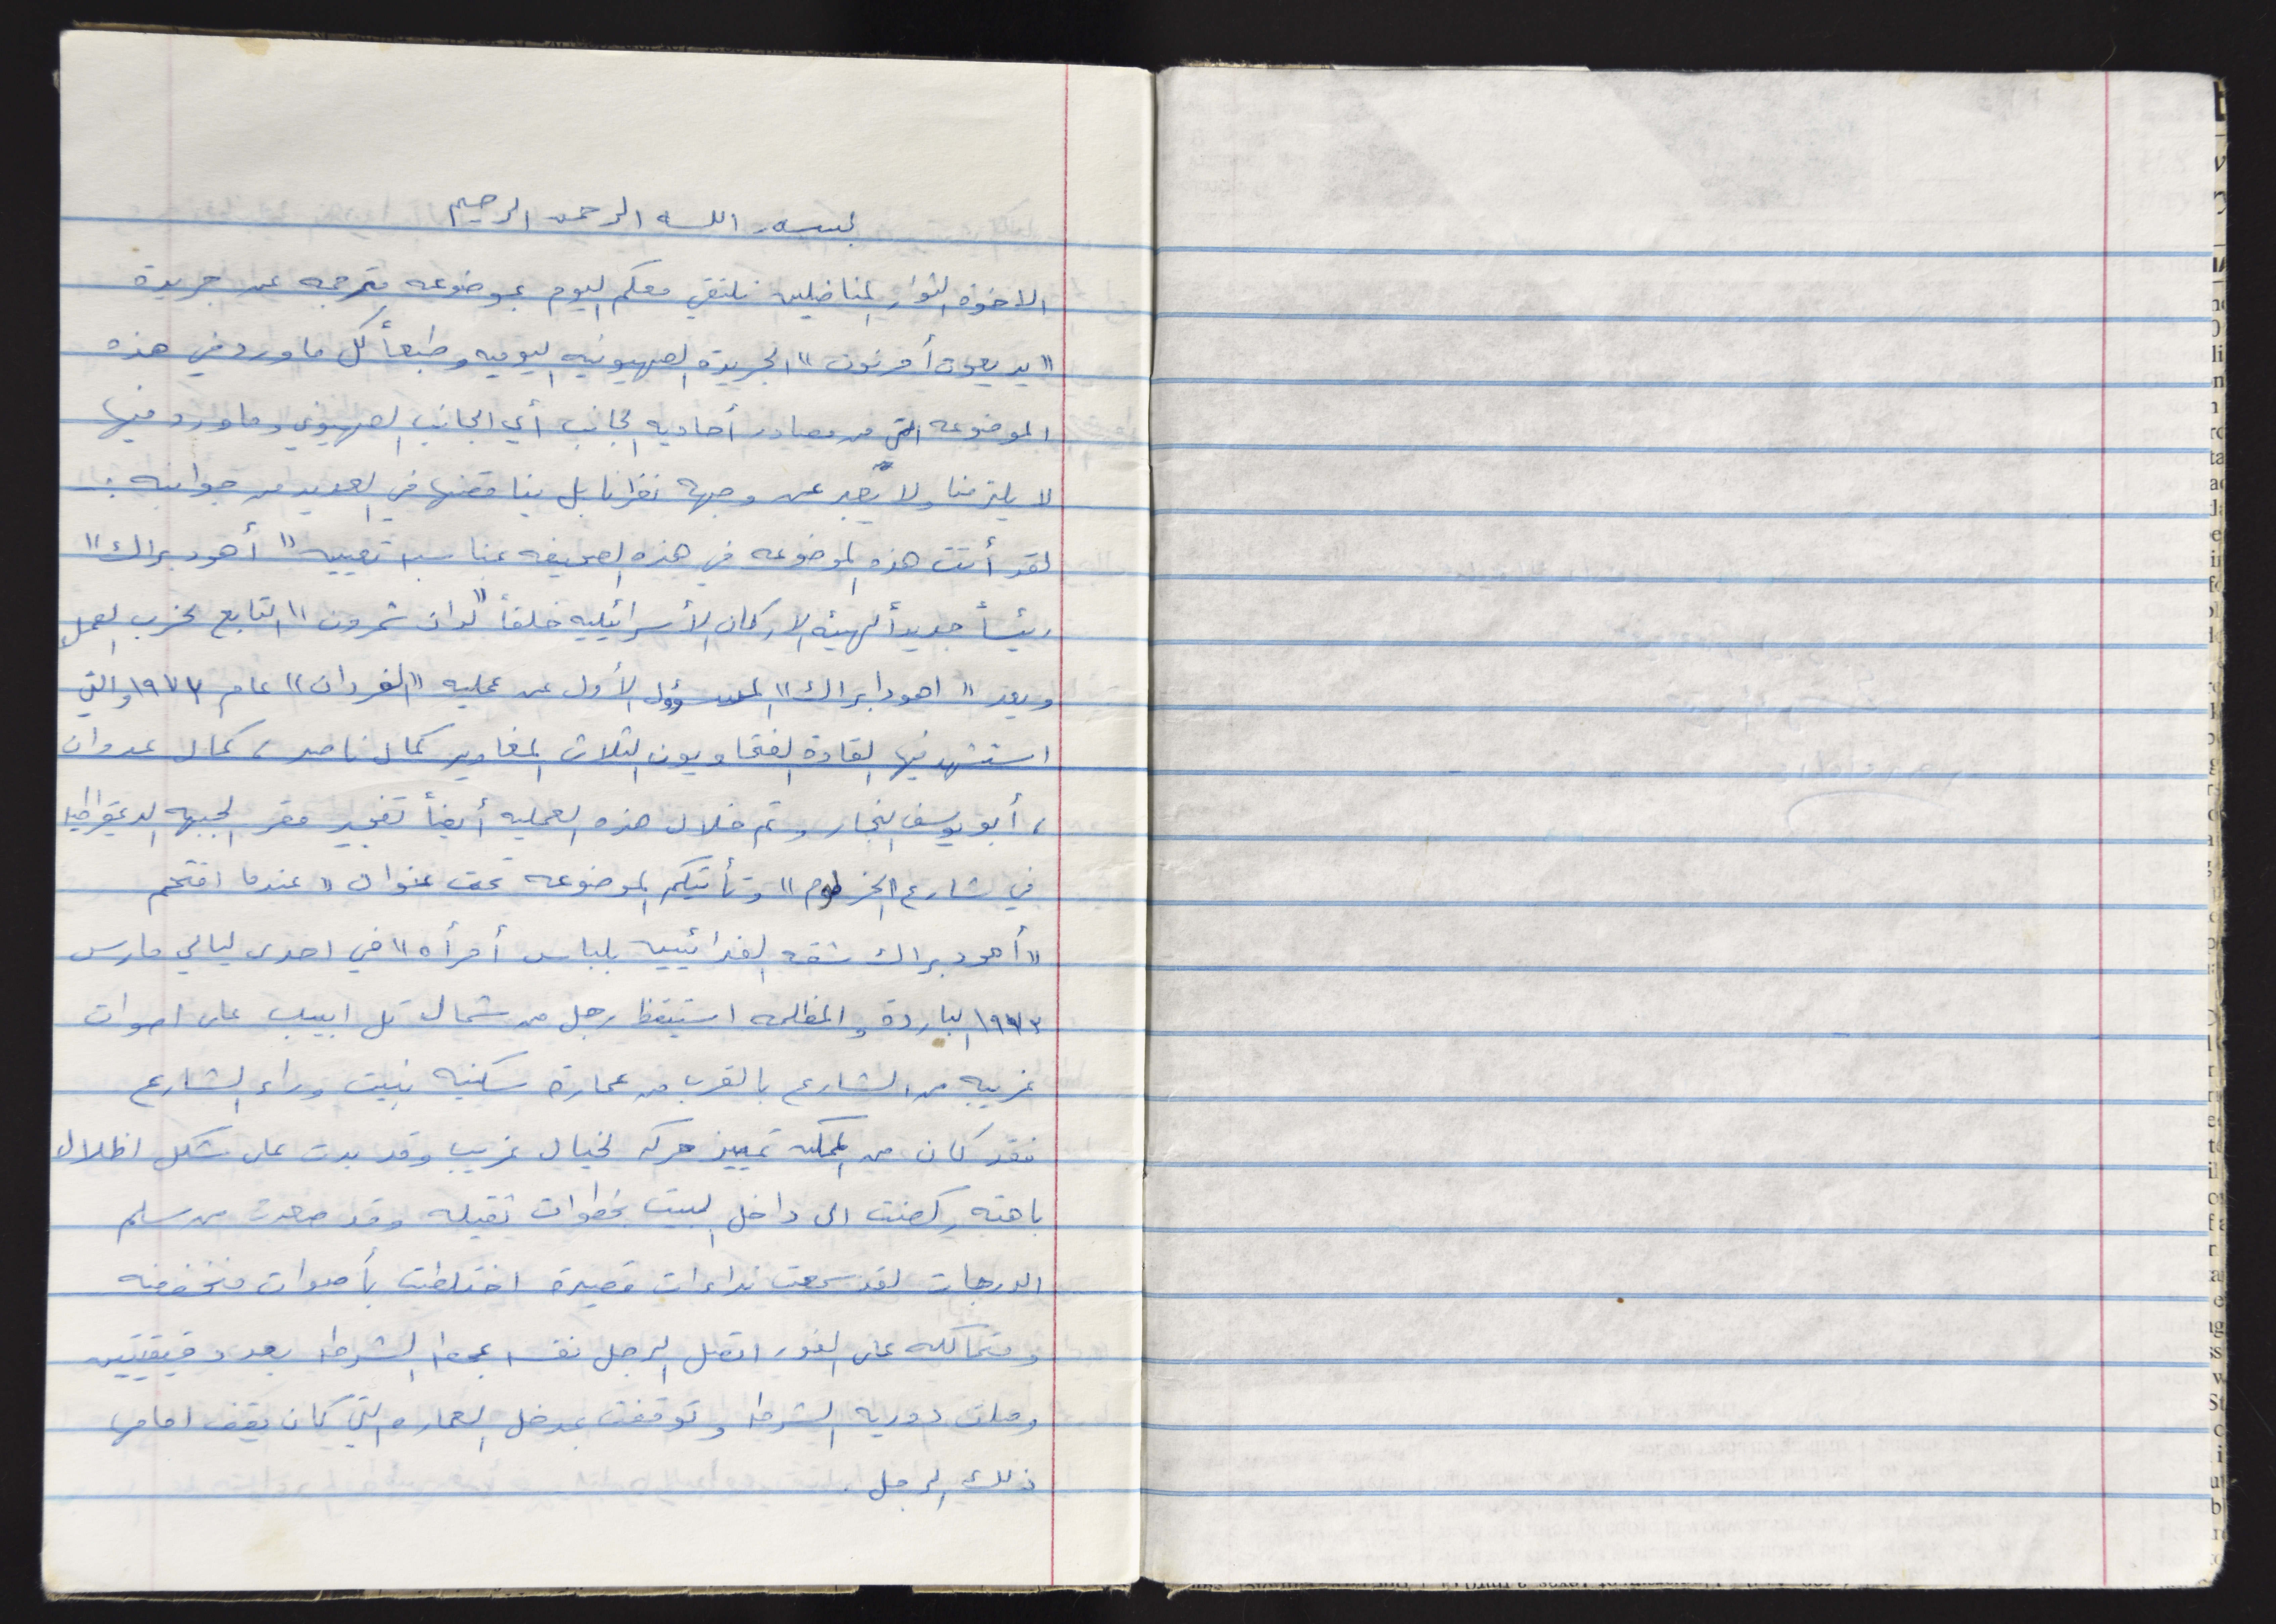 بسم الله الرحمن الرحيم
الاخوة الثوار المناضلين نلتقي معكم اليوم بموضوعه مترجمه عن جريدة
"يديعوت أحرنوت" الجريدة الصهيونيه اليوميه وطبعاً كل ما ورد في هذه
الموضوعه التي من مصادر أحاديه الجانب أي الجانب الصهيوني وما ورد فيها
لا يلزمنا ولا يعبر عن وجهة نظرنا بل يناقضها في العديد من جوانبه :
لقد أتت هذه الموضوعه في هذه الصحيفه بمناسبة تعيين "أهود براك"
رئيساً جديداً لهيئة الاركان الأسرائيليه خلفاً "لدان شمرون" التابع لحزب العمل
ويعد "اهود ابراك" المسؤول الأول عن عمليه "الفردان" عام ١٩٧٣ والتي
استشهد فيها القادة الفتحاويون الثلاث المغاوير كمال ناصر، كمال عدوان
، أبو يوسف النجار وتم خلال هذه العمليه أيضاً تفجير مقر الجبهه الديمقراطية
في شارع "الخرطوم" وتأتيكم الموضوعه تحت عنوان "عندما اقتحم
"أهود براك شقه الفدائيين بلباس أمرأه" في احدى ليالي مارس
١٩٧٣ الباردة والمظلمه استيقظ رجل من شمال تل ابيب على اصوات
غريبه من الشارع بالقرب من عمارة سكنيه بنيت وراء الشارع
فقد كان من الممكن تمييز حركه لخيال غريب وقد بدت على شكل اظلال
باهته ركضت الى داخل البيت بخطوات ثقيله وقد صعدت من سلم
الدرجات لقد سمعت نداءات قصيرة اختلطت بأصوات منخفضه
ومتمالكه على الفور اتصل الرجل نفسه بمحطة الشرطة بعد دقيقتين
وصلت دوريه الشرطة وتوقفت بمدخل العماره التي كان يقف امامها
ذلك الرجل .